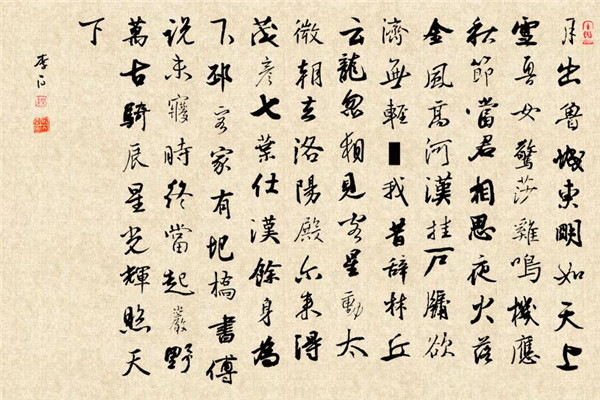 月出魯城東明如天上
雪女驚莎雞鳴機應
秋節當君相思夜火落
金風高河漢挂戶牖欲
濟無輕我昔辭林丘
云龍忽相見客星動太
微朝去洛陽殿尔來得
茂彥七葉仕漢餘身為
下邳客家有圯橋書傅
說未時終當起巖野
萬古騎辰星光輝照天
下
李白